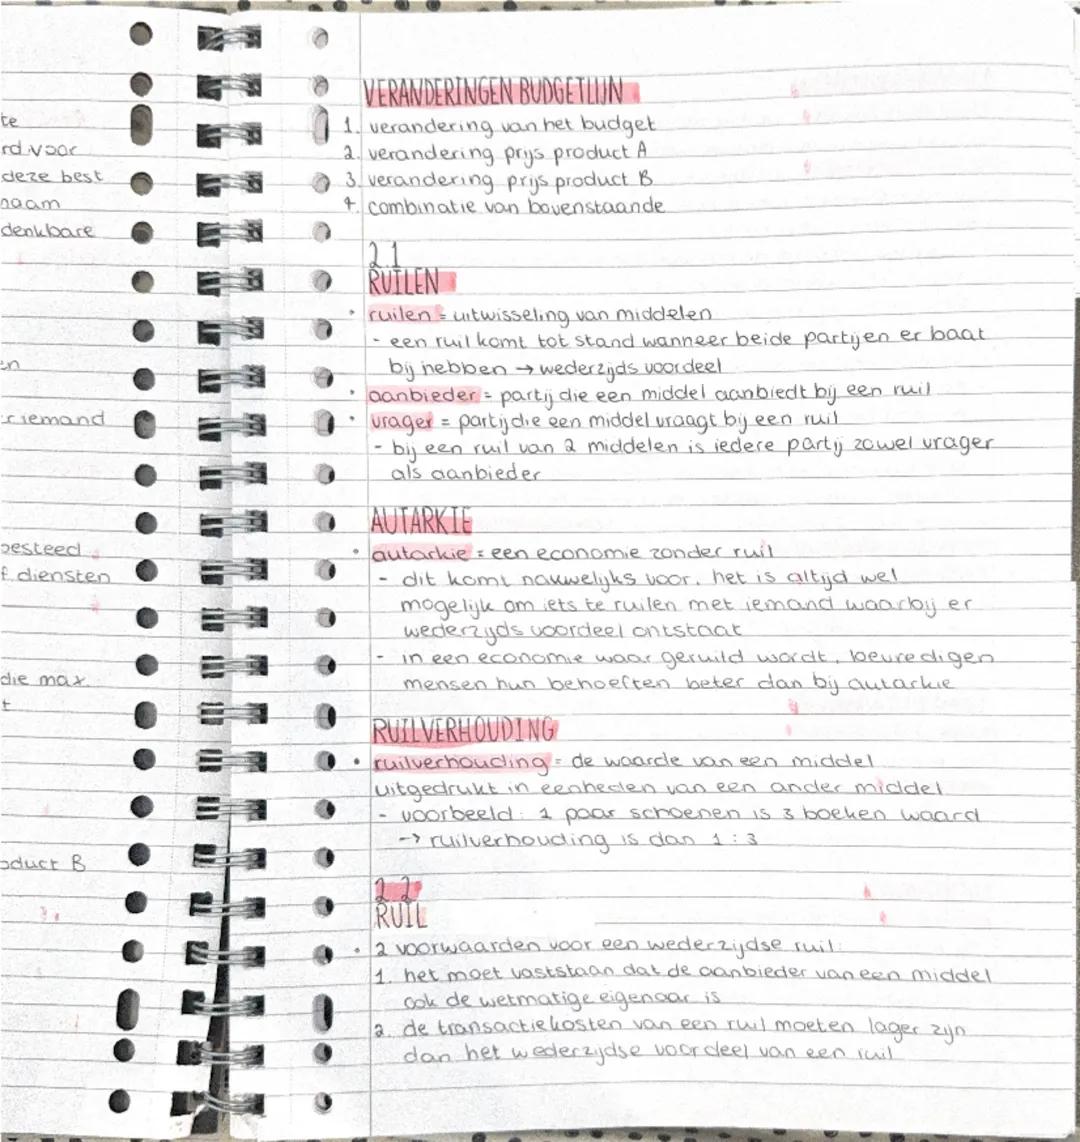 te
rd voor
deze best
naam
denkbare
en
r iemand
besteed
f diensten
die max.
t
oduct B
VERANDERINGEN BUDGETLIJN
1. verandering van het budget
2. verandering prijs product A
3. verandering prijs product B
4. combinatie van bovenstaande
2.1
RUILEN
• ruilen = uitwisseling van middelen
- een ruil komt tot stand wanneer beide partijen er baat
bij hebben → wederzijds voordeel
• aanbieder = partij die een middel aanbiedt bij een ruil
• vrager = partij die een middel vraagt bij een ruil
- bij een ruil van 2 middelen is iedere partij zowel vrager
als aanbieder
AUTARKIE
• autarkie = een economie zonder ruil
- dit komt nauwelijks voor, het is altijd wel
mogelijk om iets te ruilen met iemand waarbij er
wederzijds voordeel ontstaat
- in een economie waar geruild wordt, bevredigen
mensen hun behoeften beter dan bij autarkie
RUILVERHOUDING
• ruilverhouding = de waarde van een middel
uitgedrukt in eenheden van een ander middel
- voorbeeld: 1 paar schoenen is 3 boeken waard
→ ruilverhouding is dan 1:3
2.2
RUIL
• 2 voorwaarden voor een wederzijdse ruil:
1. het moet vaststaan dat de aanbieder van een middel
ook de wetmatige eigenaar is
2. de transactiekosten van een ruil moeten lager zijn
dan het wederzijdse voordeel van een ruil